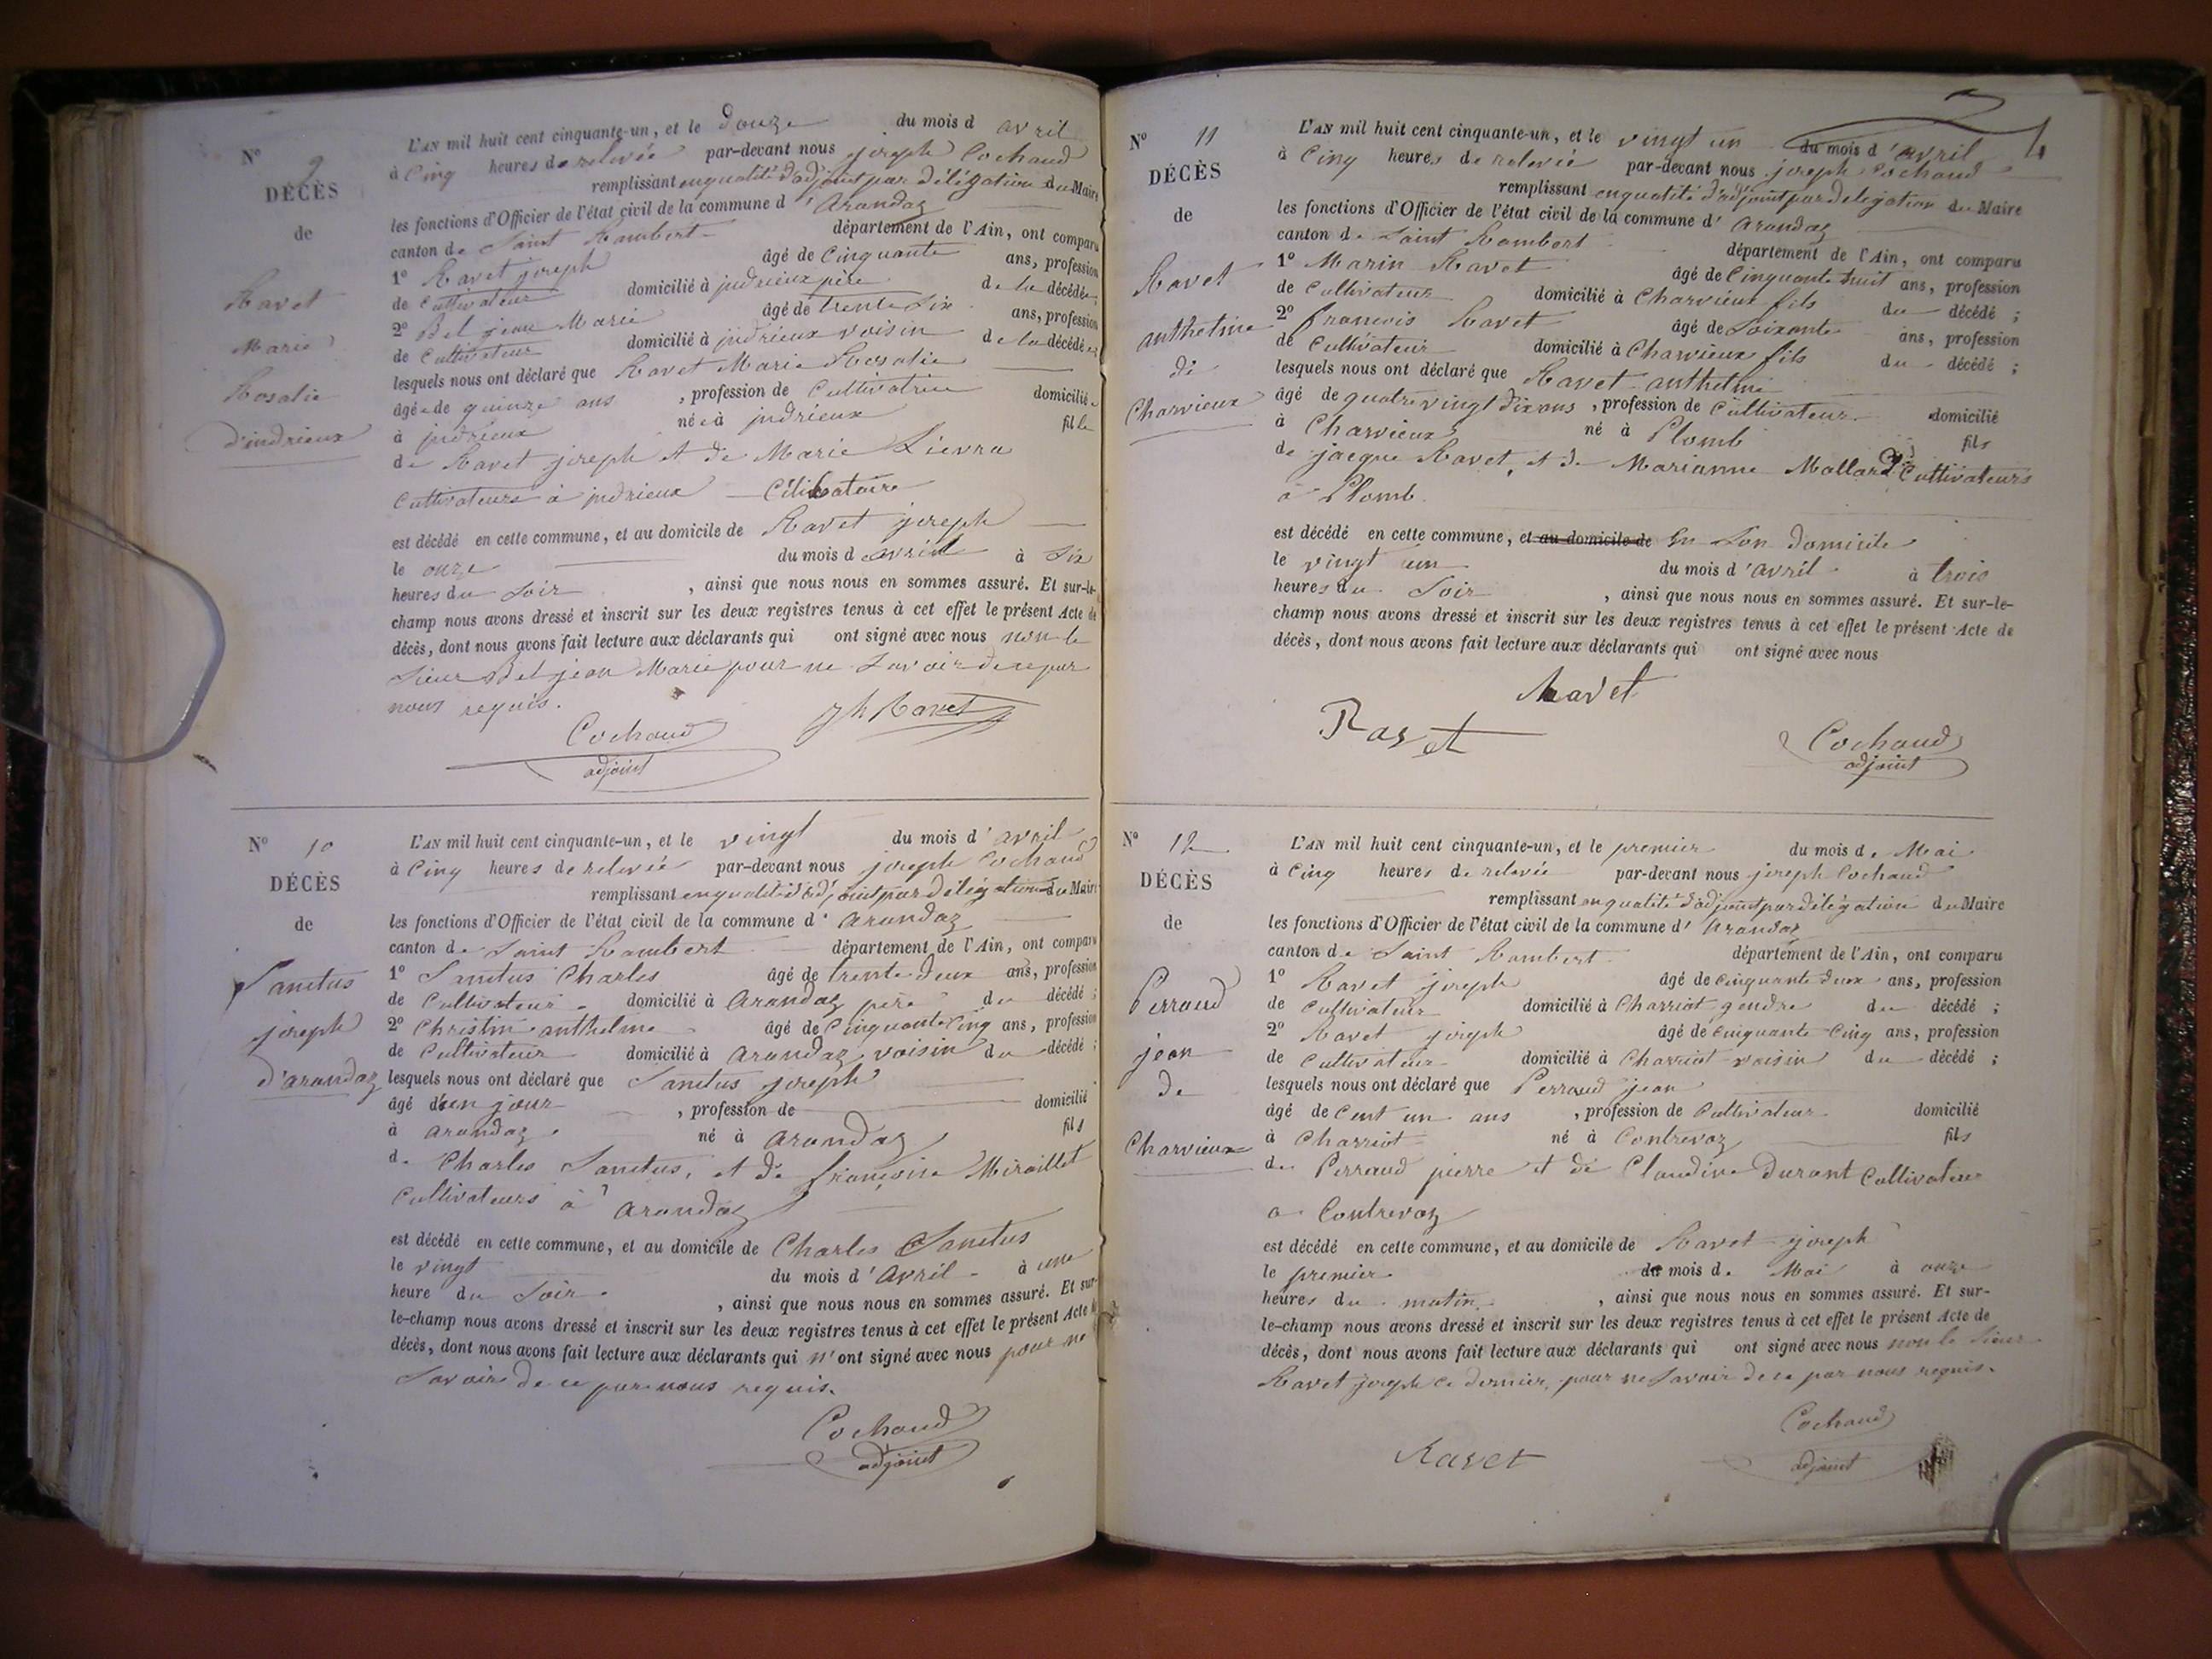 N° 9
DÉCÈS
de
Ravet
Marie
Rosalie
d'indrieux
L'AN mil huit cent cinquante-un, et le douze du mois d avril
à Cinq heures de relevée par-devant nous joseph Cochaud
remplissant en qualité d'adjoint par délégation du Maire
les fonctions d'Officier de l'état civil de la commune d' Arandaz
canton de Saint Rambert département de l'Ain, ont comparu
1° Ravet joseph âgé de Cinquante ans, profession
de Cultivateur domicilié à indrieux père de la décédée;
2° Bel jean Marie âgé de trente Six ans, profession
de Cultivateur domicilié à indrieux voisin de la décédée;
lesquels nous ont déclaré que Ravet Marie Rosalie
âgée de quinze ans , profession de Cultivatrice domiciliée
à indrieux née à indrieux fille
de Ravet joseph et de Marie Lievra
Cultivateurs à indrieux Célibataire
est décédé en cette commune, et au domicile de Ravet joseph
le onze du mois d avril à Six
heures du Soir , ainsi que nous nous en sommes assuré. Et sur-le-
champ nous avons dressé et inscrit sur les deux registres tenus à cet effet le présent Acte de
décès, dont nous avons fait lecture aux déclarants qui ont signé avec nous non le
Sieur Bel jean Marie pour ne Savoir de ce par
nous requis.
Cochaud jh Ravet
adjoint
N° 10
DÉCÈS
de
Sanctus
joseph
d'arandaz
L'AN mil huit cent cinquante-un, et le vingt du mois d' avril
à Cinq heures de relevée par-devant nous joseph Cochaud
remplissant en qualité d'adjoint par délégation du Maire
les fonctions d'Officier de l'état civil de la commune d' arandaz
canton de Saint Rambert département de l'Ain, ont comparu
1° Sanctus Charles âgé de trente deux ans, profession
de Cultivateur domicilié à Arandaz père du décédé ;
2° Christin anthelme âgé de Cinquante Cinq ans, profession
de Cultivateur domicilié à arandaz voisin du décédé ;
lesquels nous ont déclaré que Sanctus joseph
âgé d'un jour , profession de domicilié
à arandaz né à arandaz fils
de Charles Sanctus, et de françoise Miraillet
Cultivateurs à arandaz
est décédé en cette commune, et au domicile de Charles Sanctus
le vingt du mois d' Avril à une
heure du Soir , ainsi que nous nous en sommes assuré. Et sur-
le-champ nous avons dressé et inscrit sur les deux registres tenus à cet effet le présent Acte de
décès, dont nous avons fait lecture aux déclarants qui n'ont signé avec nous pour ne
Savoir de ce par nous requis.
Cochaud
adjoint
N° 11
DÉCÈS
de
Ravet
anthelme
de
Charvieux
L'AN mil huit cent cinquante-un, et le vingt un du mois d' avril
à Cinq heures de relevée par-devant nous joseph Cochaud
remplissant en qualité d'adjoint par delegation du Maire
les fonctions d'Officier de l'état civil de la commune d' arandaz
canton de Saint Rambert département de l'Ain, ont comparu
1° Marin Ravet âgé de Cinquante huit ans, profession
de Cultivateur domicilié à Charvieux fils du décédé ;
2° francois Ravet âgé de Soixante ans, profession
de Cultivateur domicilié à Charvieux fils du décédé ;
lesquels nous ont déclaré que Ravet anthelme
âgé de quatre vingt dix ans , profession de Cultivateur domicilié
à Charvieux né à Plomb fils
de jacque Ravet, et de Marianne Mollard Cultivateurs
à Plomb
est décédé en cette commune, et au domicile de En Son domicile
le vingt un du mois d' avril à trois
heures du Soir , ainsi que nous nous en sommes assuré. Et sur-le-
champ nous avons dressé et inscrit sur les deux registres tenus à cet effet le présent Acte de
décès, dont nous avons fait lecture aux déclarants qui ont signé avec nous
Ravet
Ravet Cochaud
adjoint
N° 12
DÉCÈS
de
Perraud
jean
de
Charvieux
L'AN mil huit cent cinquante-un, et le premier du mois de Mai
à Cinq heures de relevée par-devant nous joseph Cochaud
remplissant en qualité d'adjoint par délégation du Maire
les fonctions d'Officier de l'état civil de la commune d' Arandaz
canton de Saint Rambert département de l'Ain, ont comparu
1° Ravet joseph âgé de Cinquante deux ans, profession
de Cultivateur domicilié à Charriot gendre du décédé ;
2° Ravet joseph âgé de Cinquante Cinq ans, profession
de Cultivateur domicilié à Charriot voisin du décédé ;
lesquels nous ont déclaré que Perraud jean
âgé de Cent un ans , profession de Cultivateur domicilié
à Charriot né à Contrevoz fils
de Perraud pierre et de Claudine Durant Cultivateurs
a Contrevoz
est décédé en cette commune, et au domicile de Ravet joseph
le premier du mois de Mai à onze
heures du matin , ainsi que nous nous en sommes assuré. Et sur-
le-champ nous avons dressé et inscrit sur les deux registres tenus à cet effet le présent Acte de
décès, dont nous avons fait lecture aux déclarants qui ont signé avec nous non le Sieur
Ravet joseph ce dernier, pour ne Savoir de ce par nous requis.
Cochaud
Ravet adjoint